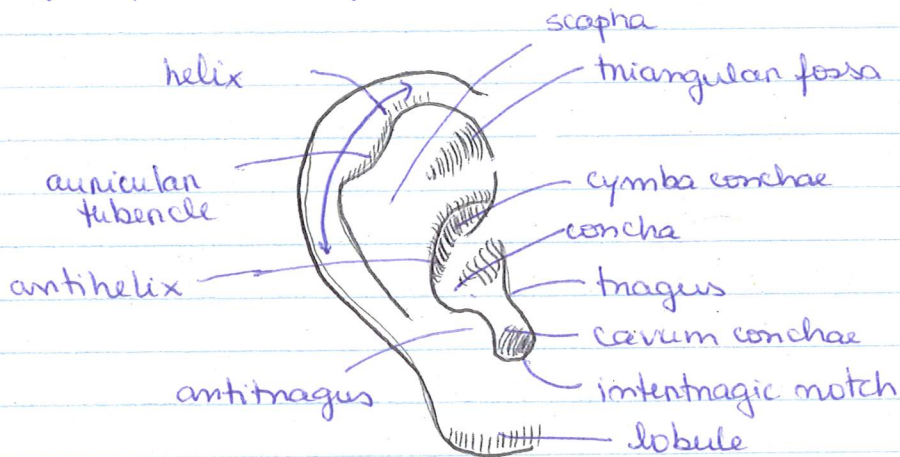 scapha
helix
triangular fossa
auricular
tubercle
cymba conchae
concha
antihelix
tragus
cavum conchae
antitragus
intertragic notch
lobule